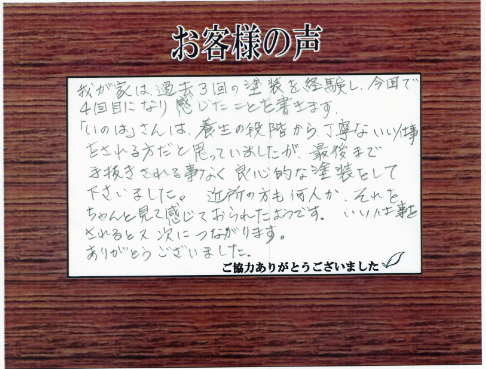 お客様の声
我が家は過去3回の塗装を経験し、今回で
4回目になり感じたことを書きます。
「いのは」さんは、養生の段階から、丁寧ないい仕事
をされる方だと思っていましたが、最後まで
手抜きされる事なく良心的な塗装をして
下さいました。 近所の方も何人か、それを
ちゃんと見て感じておられたようです。 いい仕事を
されると又次につながります。
ありがとうございました。
ご協力ありがとうございました